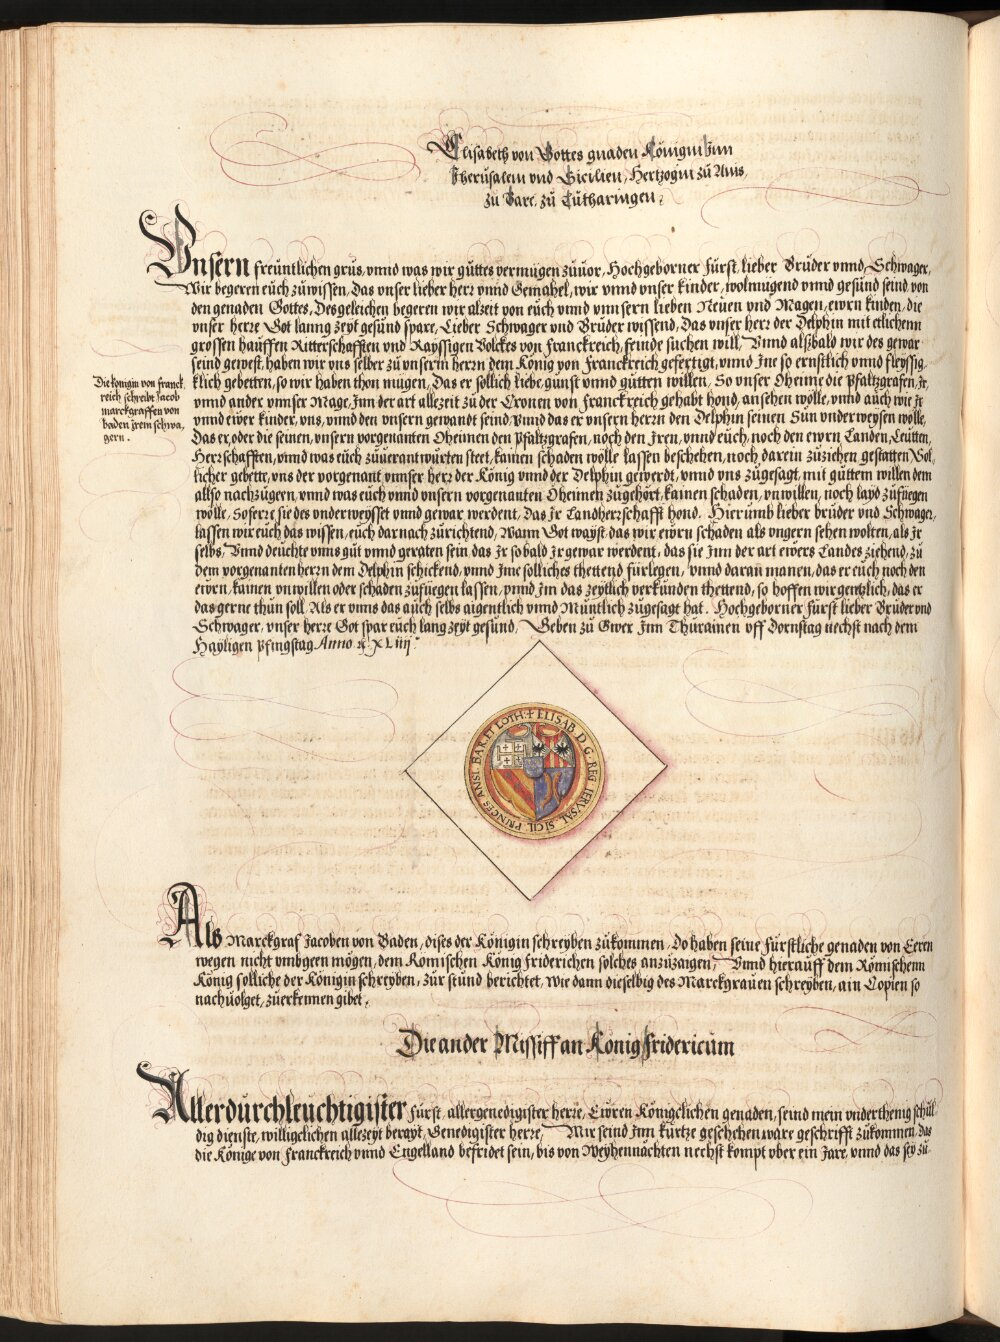 Elisabeth von Gottes gnaden Königin Inn
Jherusalem vnd Sicilien, Hertzogin zu Anis,
zu Bare, zu Lutharingen.
Vnsern freuntlichen grus, vnnd was wir guttes vermugen zuuor, Hochgeborner Fürst, lieber Bruder vnnd Schwager,
Wir begeren euch zuwissen, Das vnser lieber herr vnnd Gemahel, wir vnnd vnser kinder, wolmugend vnnd gesund seind von
den genaden Gottes, Desgeleichen begeren wir alzeit von euch vnnd vnnsern lieben Neuen vnd Magen, ewrn kinden, die
vnser herre Got lanng zeyt gesund spare, Lieber Schwager vnd Bruder wissend, Das vnser herr der Delphin mit etlichenn
grossen hauffen Ritterschafften vnd Rayssigen Volckes von Franckreich, feinde suchen will, Vnnd alßbald wir des gewar
seind gewest, haben wir vns selber zu vnserm herrn dem König von Franckreich gefertigt, vnnd Jne so ernstlich vnnd fleyssig-
klich gebetten, so wir haben thon mugen, Das er sollich liebe, gunst vnnd gutten willen, So vnser Oheime die Pfaltzgrafen, Jr,
vnnd ander vnnser Mage, Inn der art allezeit zu der Cronen von Franckreich gehabt hond, ansehen wolle, vnnd auch wie Jr
vnnd ewer kinder, vns, vnnd den vnsern gewandt seind, Vnnd das er vnsern herrn den Delphin seinen Sun vnderweysen wolle,
Das er, oder die seinen, vnsern vorgenanten Oheimen den Pfaltzgrafen, noch den Jren, vnnd euch, noch den ewrn Landen, Leutten,
Herrschafften, vnnd was euch zuuerantwurten steet, kainen schaden wolle lassen beschehen, noch darein zuziehen gestatten, Sol-
licher gebette, vns der vorgenant vnnser herr der König vnnd der Delphin gewerdt, vnnd vns zugesagt, mit guttem willen dem
allso nachzugern, vnnd was euch vnnd vnsern vorgenanten Oheimen zugehört, kainen schaden, vnwillen, noch layd zufuegen
wolle, Soferre sie des vnderweysset vnnd gewar werdent, Das Jr Landherrschafft hond. Hierumb lieber bruder vnd Schwager,
lassen wir euch das wissen, euch darnach zurichtend, Wann Got wayst, das wir ewrn schaden als vngern sehen wolten, als Jr
selbs, Vnnd deuchte vnns gut vnnd geraten sein, das Jr sobald Jr gewar werdent, das sie Inn der art ewers Landes ziehend, zu
dem vorgenanten herrn dem Delphin schickend, vnnd Jme solliches thettend furlegen, vnnd daran manen, das er euch noch den
ewrn, kainen vnwillen oder schaden zufuegen lassen, vnnd Im das zeytlich verkunden thettend, so hoffen wir gentzlich, das er
das gerne thun soll, Als er vnns das auch selbs aigentlich vnnd Muntlich zugesagt hat. Hochgeborner Fürst lieber Bruder vnd
Schwager, vnser herre Got spar euch lang zeyt gesund, Geben zu Gwer Inn Thurainen vff Dornstag nechst nach dem
Hayligen Pfingstag Anno &c XLiiij.
Die konigin von franck
reich schreibt Jacob
marckgraffen von
baden Jrem schwa,
gern.
+ ELISAB. D. G. REG. IERVSAL. SICIL. PRINCES ANSI. BAR. ET LOTH.
Als Marckgraf Jacoben von Baden, dises der Königin schreyben zukommen, Do haben seine Fürstliche genaden von Eeren
wegen nicht vmbgeen mögen, dem Römischen König Friderichen solches anzuzaigen, Vnnd hierauff dem Römischenn
König solliche der Königin schreyben, zur stund berichtet, wie dann dieselbig des Marckgrauen schreyben, ain Copien so
nachuolget, zuerkennen gibet.
Die ander Missiff an König Fridericum
Allerdurchleuchtigister Fürst, allergenedigister herre, Ewren Königclichen genaden, seind mein vnderthenig schul-
dig dienste, willigclichen allezeyt berayt, Genedigister herre, Mir seind Inn kürtze geschehen ware geschrifft zukommen, Das
die Könige von Franckreich vnnd Engelland befridet sein, bis von Weyhennachten nechst kompt vber ein Jare, vnnd das sey zu-